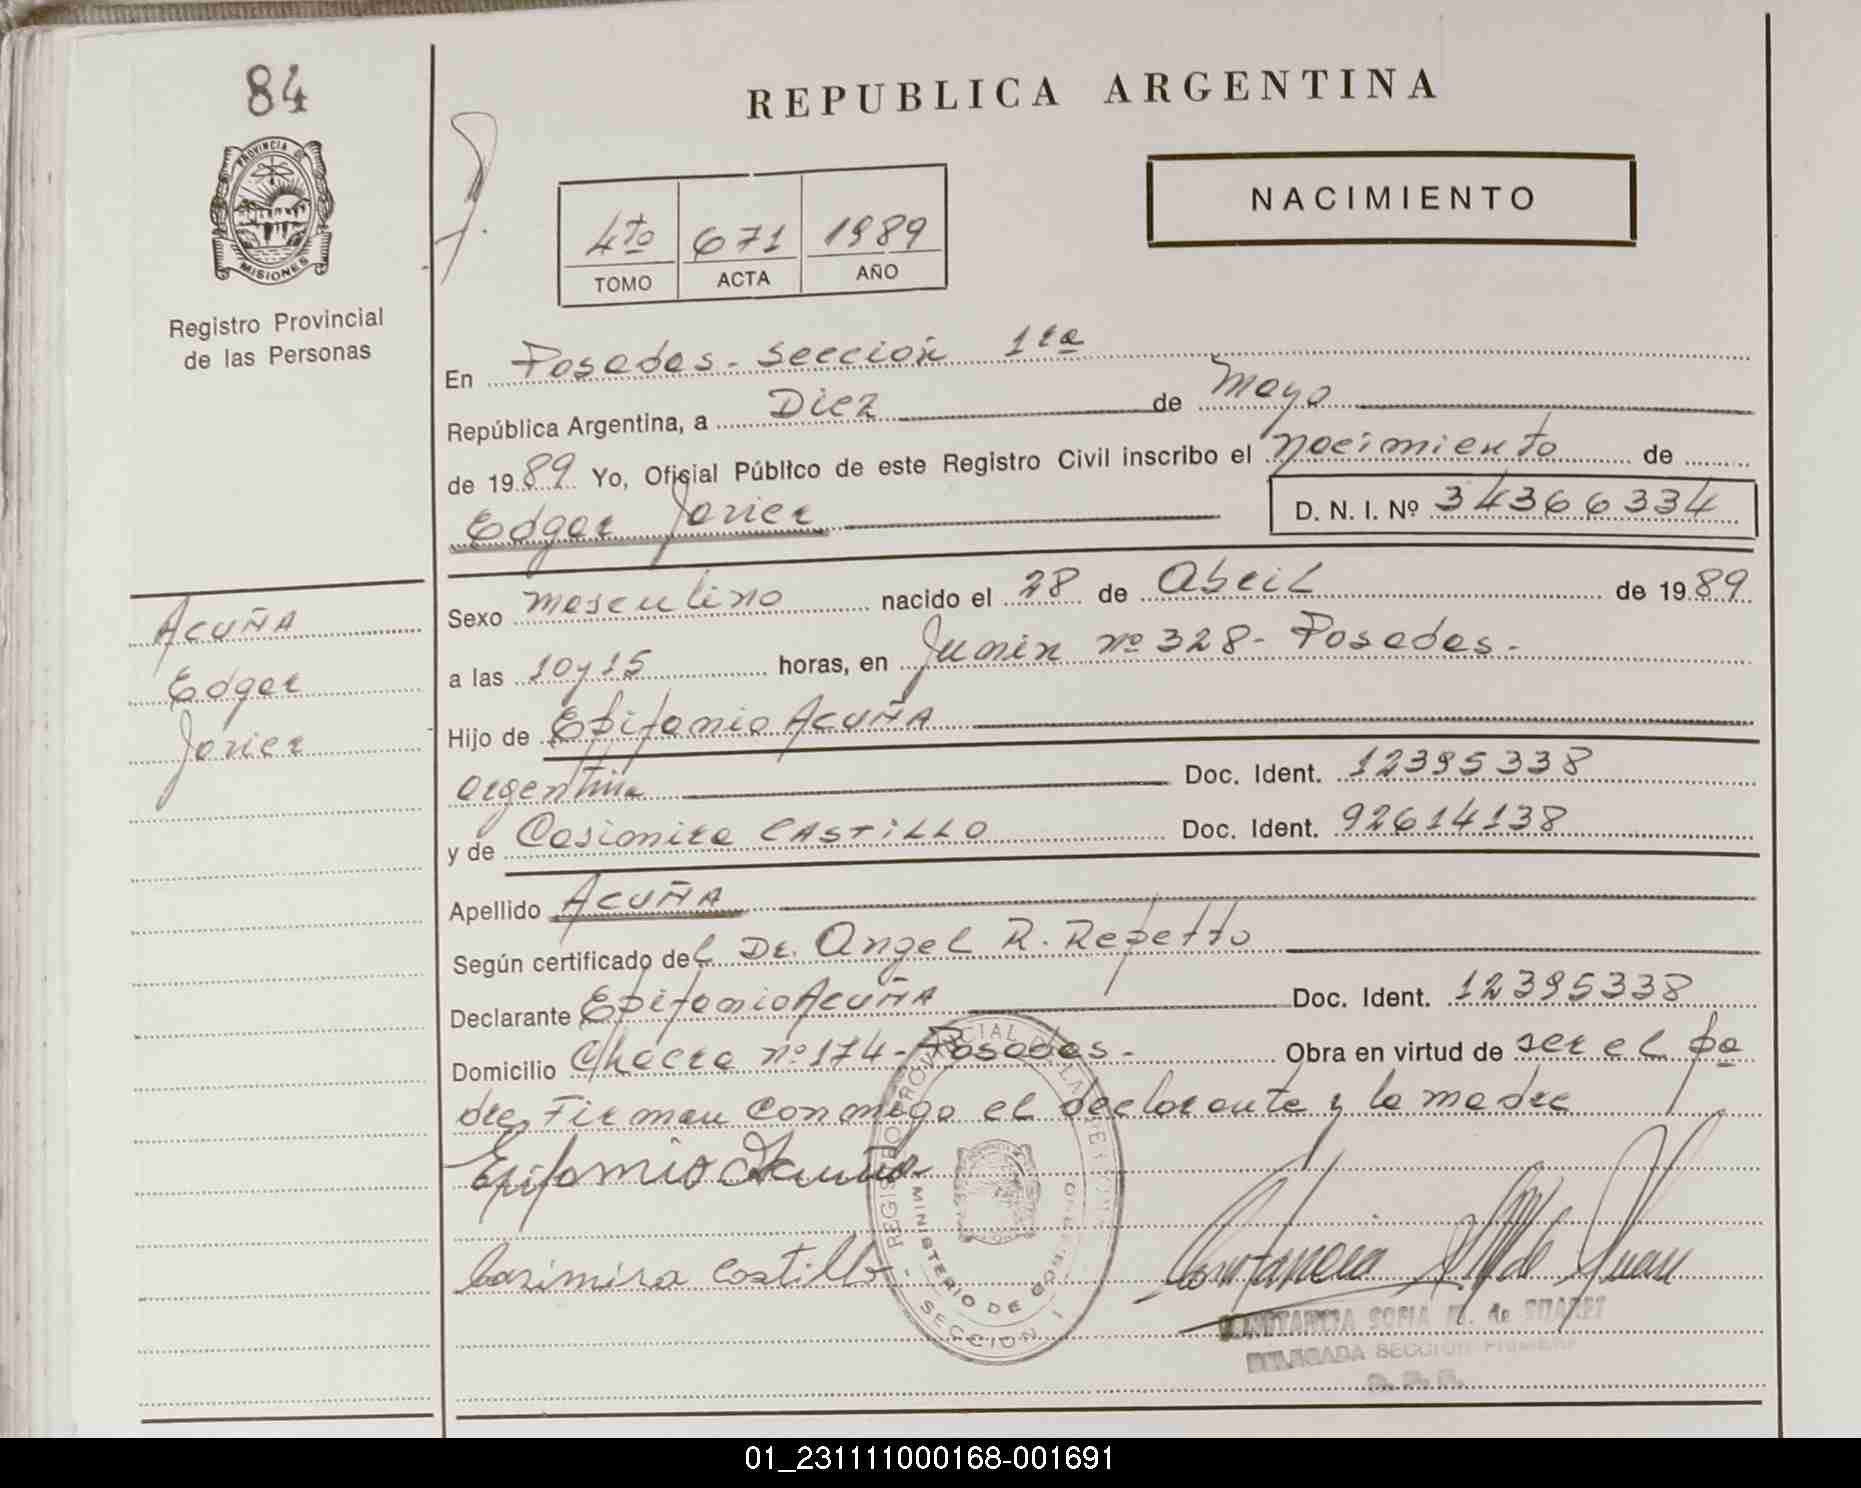 84
PROVINCIA DE
MISIONES
Registro Provincial
de las Personas
REPUBLICA ARGENTINA
NACIMIENTO
4to 671 1989
TOMO ACTA AÑO
En Posadas - Sección 1ra
República Argentina, a Diez de Mayo
de 1989 Yo, Oficial Público de este Registro Civil inscribo el nacimiento de
Edgar Javier D. N. I. Nº 34366334
Acuña
Edgar
Javier
Sexo masculino nacido el 28 de Abril de 1989
a las 10 y 15 horas, en Junin nº 328 - Posadas -
Hijo de Epifanio Acuña
argentina Doc. Ident. 12395338
y de Casimira CASTILLO Doc. Ident. 92614138
Apellido Acuña
Según certificado del Dr. Angel R. Repetto
Declarante Epifanio Acuña Doc. Ident. 12395338
Domicilio Chacra nº 174 - Posadas - Obra en virtud de ser el pa
dre, Firman conmigo el declarante y la madre
Epifanio Acuña
Casimira Castillo
REGISTRO PROVINCIAL DE LAS PERSONAS
MINISTERIO DE GOBIERNO
SECCION 1
CONSTANCIA SOFIA M. de SUAREZ
DELEGADA SECCION PRIMERA
R. P. P.
01_231111000168-001691